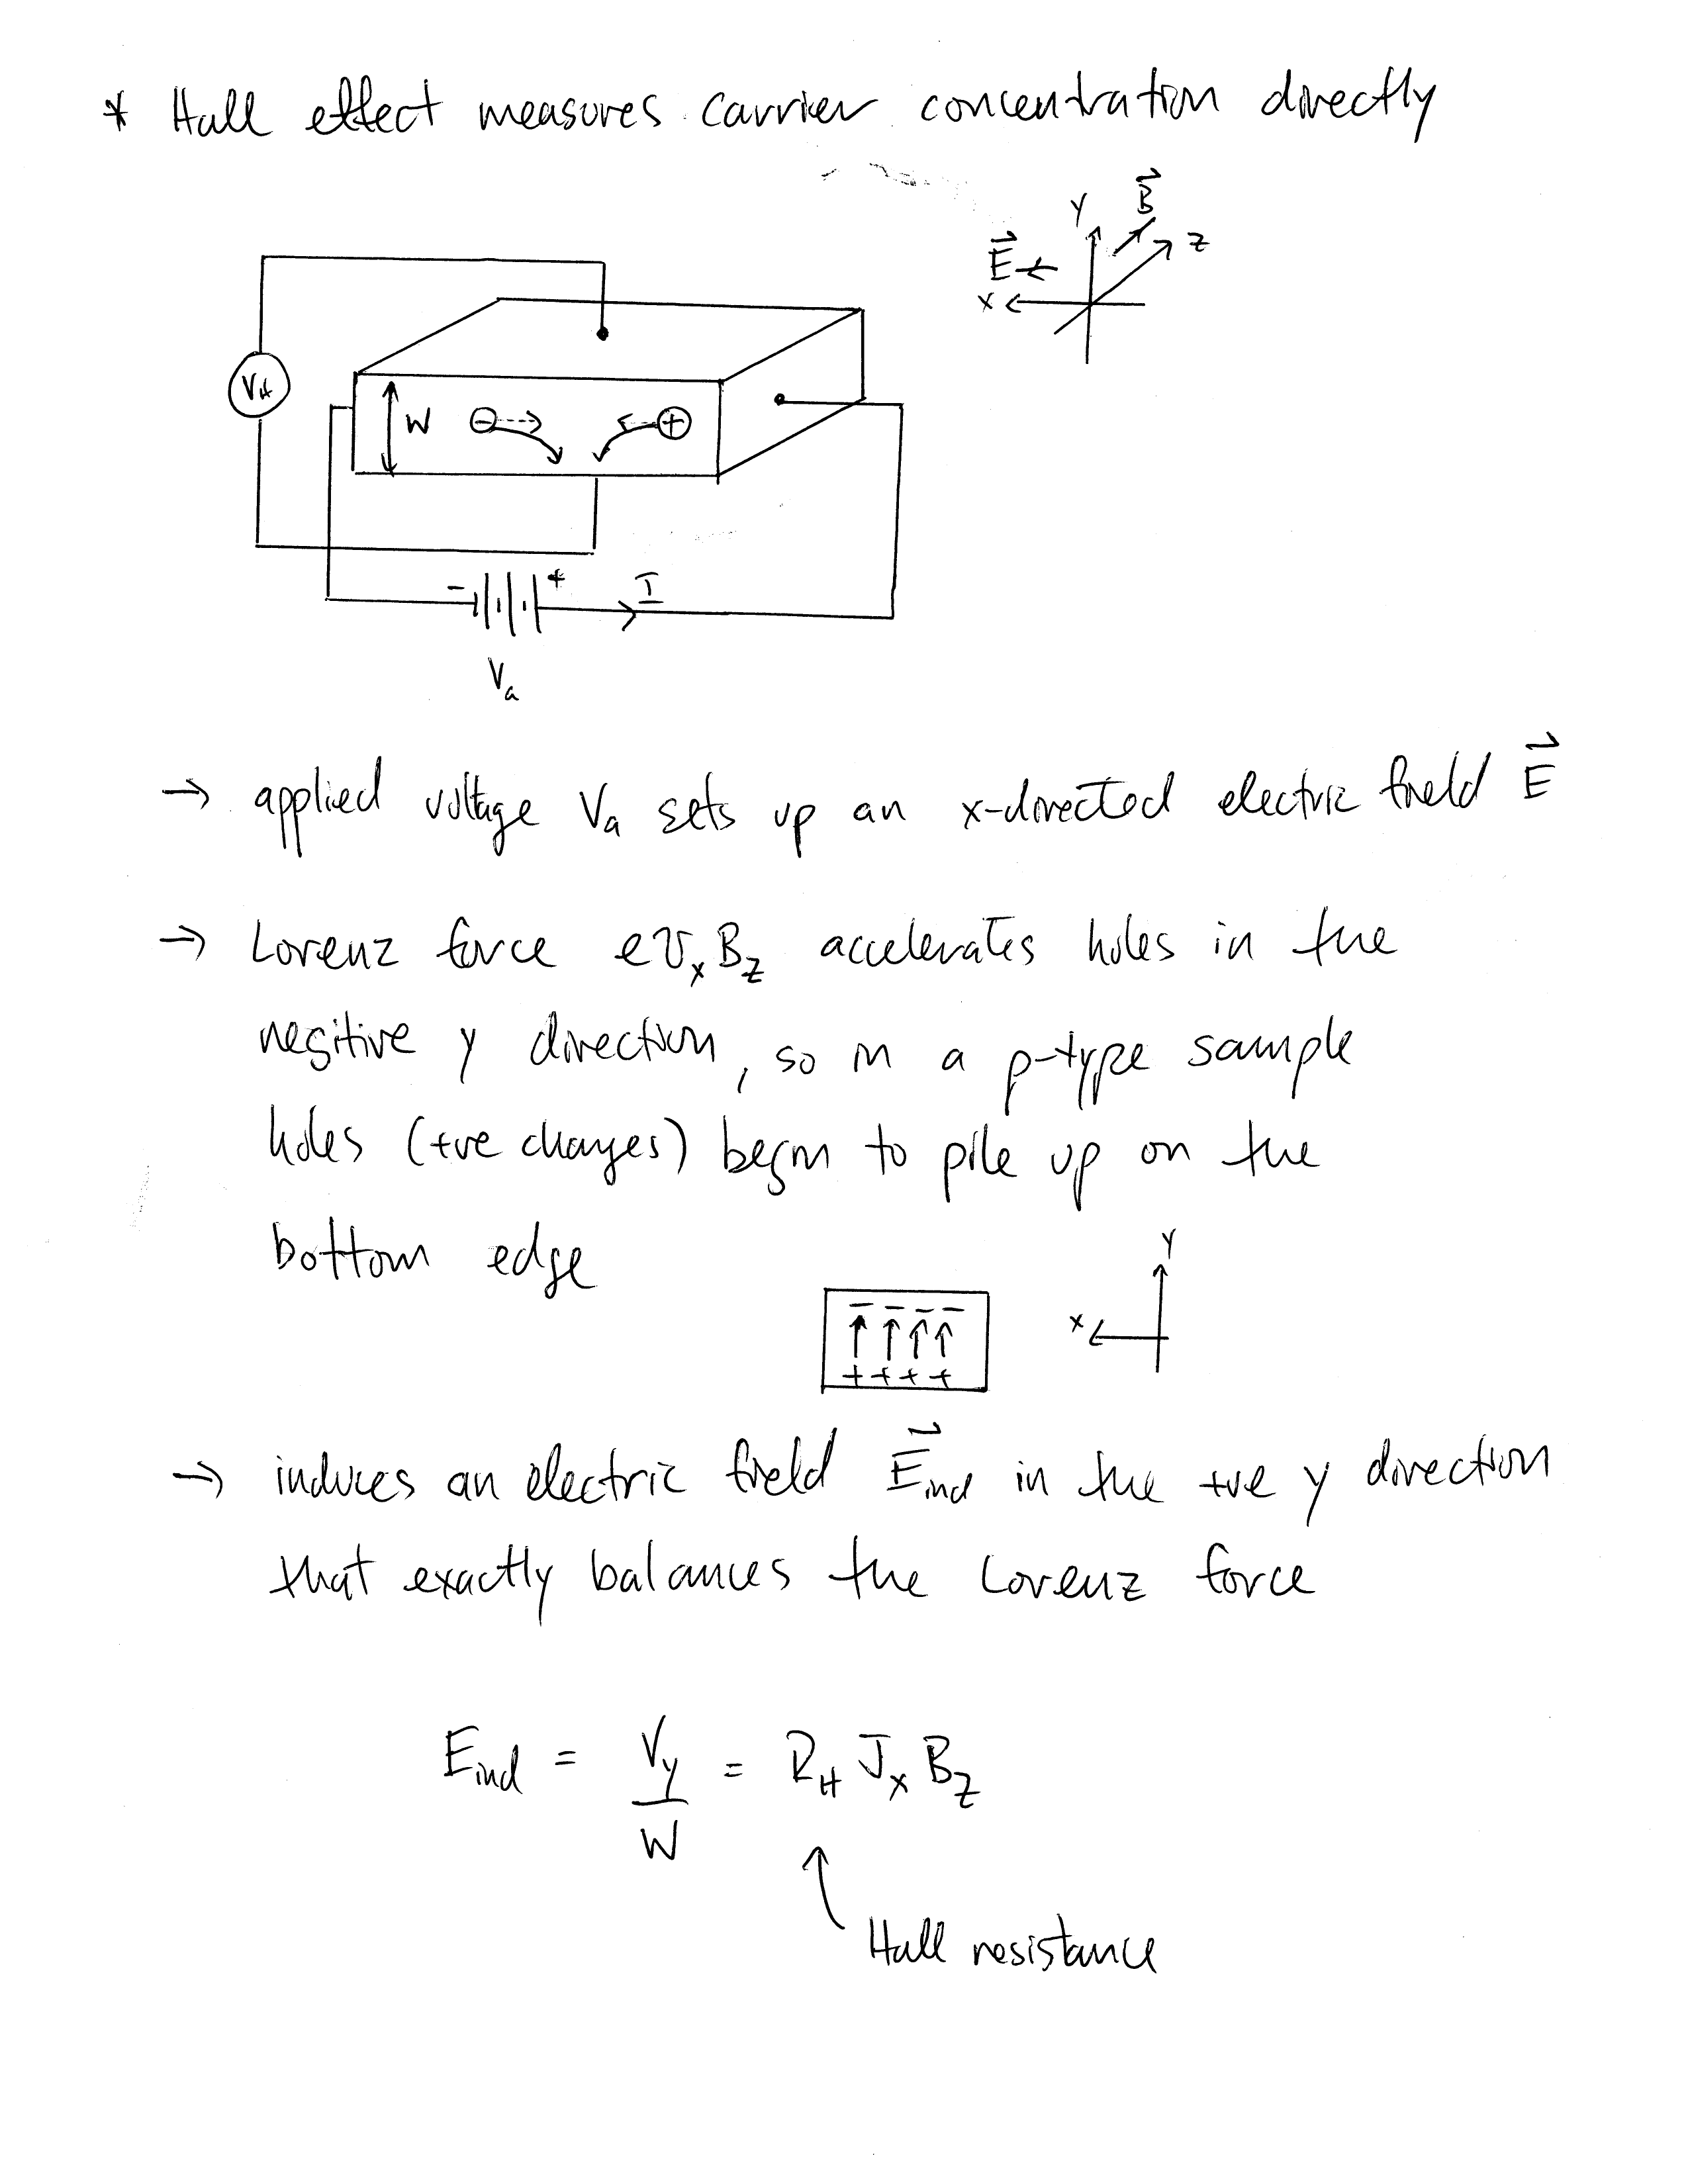 * Hall effect measures carrier concentration directly
Y B⃗
E⃗ Z
X
V_H
W - +
- + I
V_a
→ applied voltage V_a sets up an x-directed electric field E⃗
→ Lorenz force e v_x B_z accelerates holes in the
negitive y direction, so in a p-type sample
holes (+ve charges) begin to pile up on the
bottom edge
Y
- - - -
X
+ + + +
→ induces an electric field E⃗_ind in the +ve y direction
that exactly balances the Lorenz force
E_ind = V_y / W = R_H J_x B_z
Hall resistance